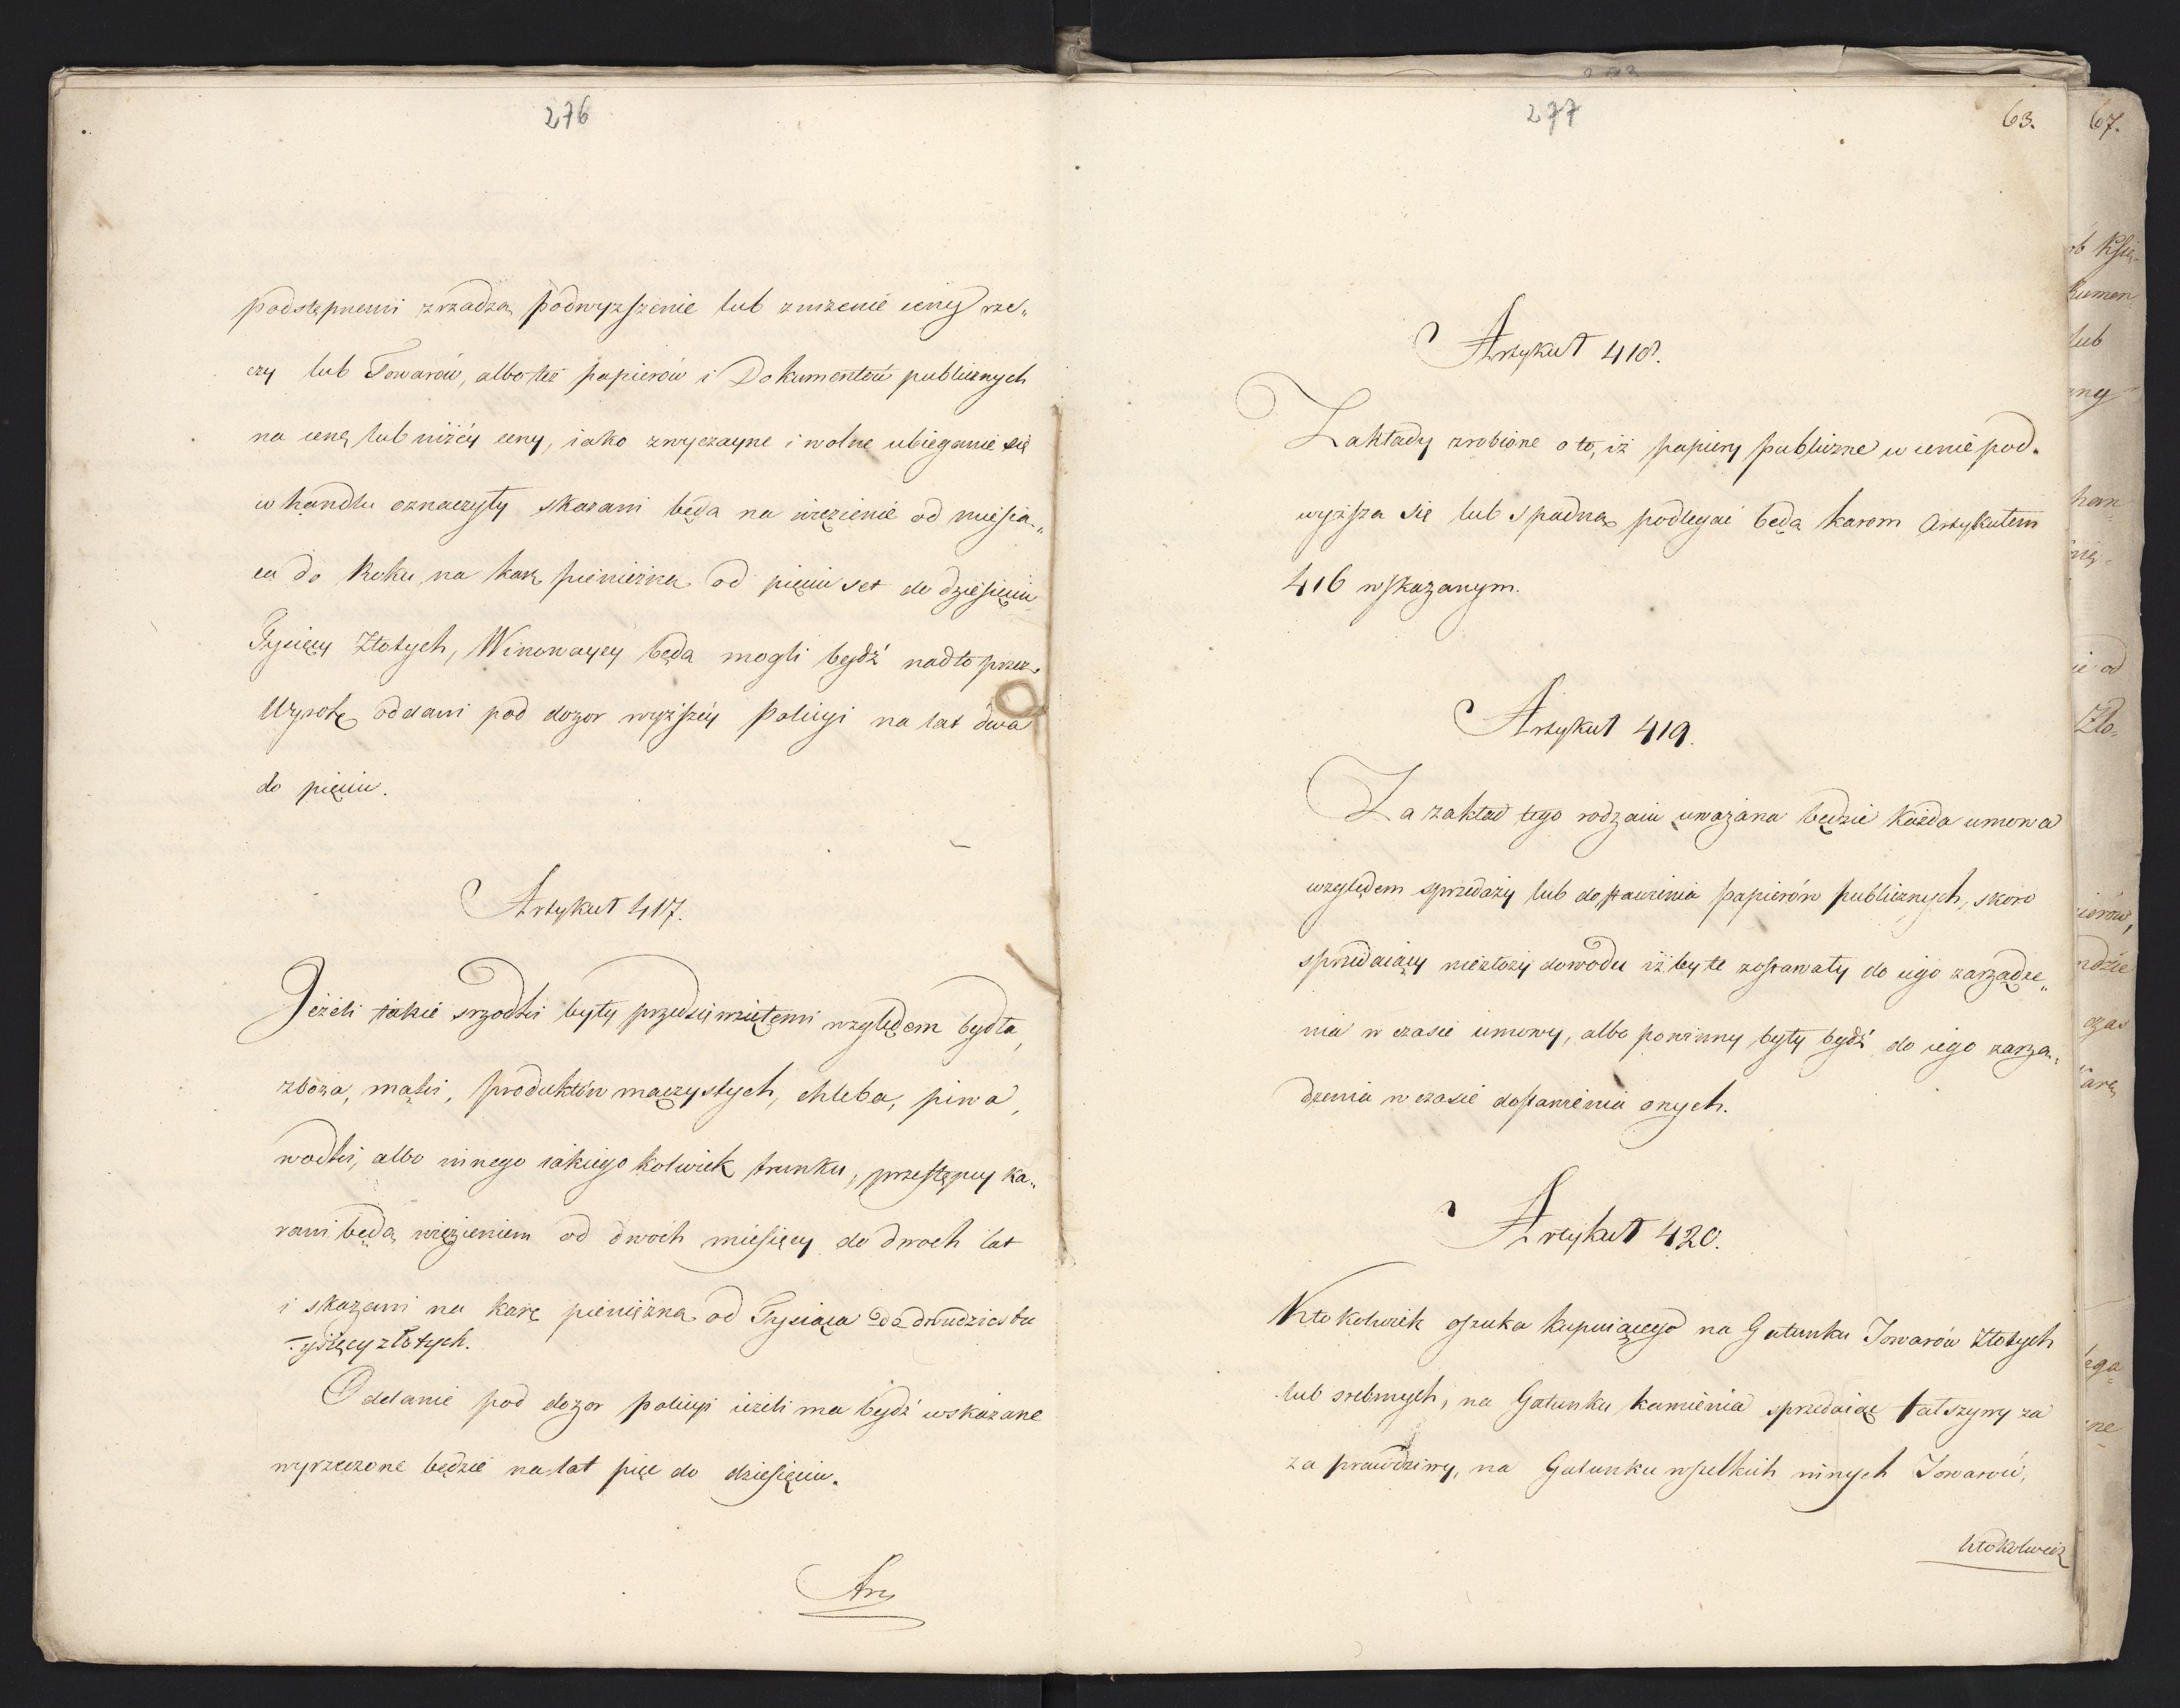 276
podstępnemi zrzadzą podwyzszenie lub znizenie ceny rze„
czy lub Towarów, albo też papierów i Dokumentów publicznych
na cenę lub niżéy ceny, iako zwyczayne i wolne ubieganie się
w handlu oznaczyły skazani będą na więzienie od miesią„
ca do Roku, na karę pieniężną od pięciu set do dziesięciu
Tysięcy Złotych, Winowaycy będą mogli bydź nadto przez
Wyrok oddani pod dozor wyższéy Policyi na lat dwa
do pięciu.
Artykuł 417.
Jeżeli takie srzodki były przedsięwziętemi względem bydła,
zboża, mąki, produktów mączystych, chleba, piwa,
wodki, albo innego iakiego kolwiek trunku, przestępcy ka„
rani będą więzieniem od dwoch miesięcy do dwoch lat
i skazani na karę pieniężną od Tysiąca do dwudziestu
Tysięcy złotych.
Oddanie pod dozor policyi ieżeli ma bydź wskazane
wyrzeczone będzie na lat pięc do dziesięciu.
Art
277
63.
Artykuł 418.
Zakłady zrobione o to, iż papiery publiczne w cenie pod„
wyższą się lub spadną podlegać będą karom Artykułem
416 wskazanym.
Artykuł 419.
Za zakład tego rodzaiu uważana będzie każda umowa
względem sprzedaży lub dostawienia papierów publicznych, skoro
sprzedaiący niezłoży dowodu iż by te zostawały do iego zarządze„
nia w czasie umowy, albo powinny były bydź do iego zarzą„
dzenia w czasie dostawienia onych.
Artykuł 420.
Ktokolwiek oszuka kupuiącego na Gatunku Towarów złotych
lub srebrnych, na Gatunku kamienia sprzedaiąc fałszywy za
za prawdziwy, na Gatunku wszelkich innych Towarów,
ktokolwiek
67.
lub
ie od
Zło„
czas